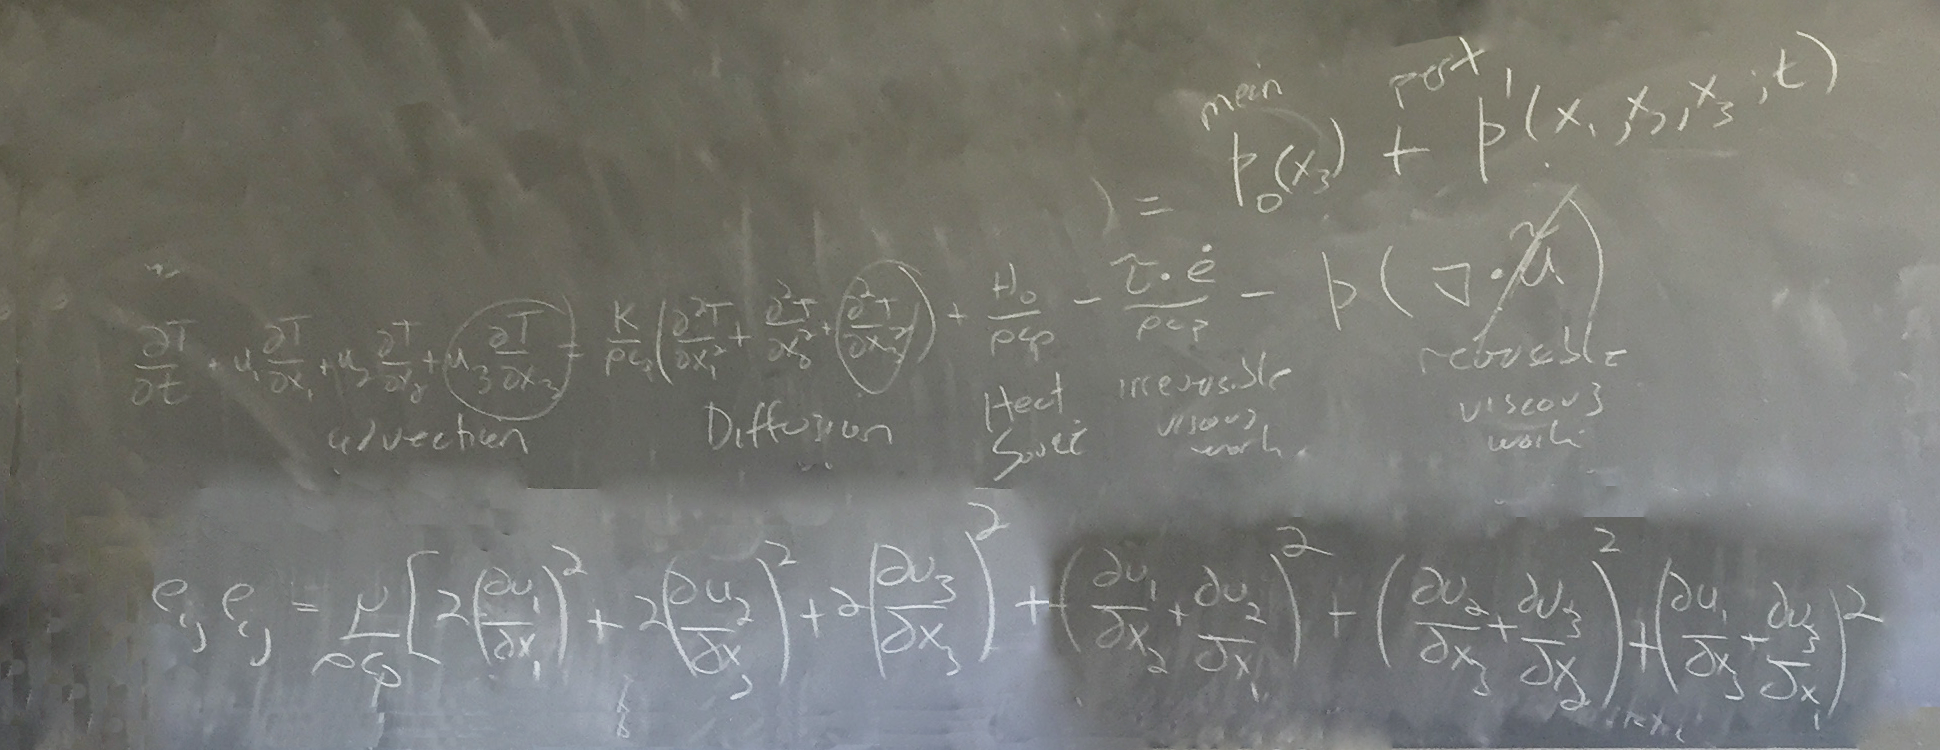 mean pert
) = p₀(x₃) + p'(x₁, x₂, x₃; t)
∂T/∂t + u₁ ∂T/∂x₁ + u₂ ∂T/∂x₂ + u₃ ∂T/∂x₃ = K/ρcₚ (∂²T/∂x₁² + ∂²T/∂x₂² + ∂²T/∂x₃²) + H₀/ρcₚ - τ·ė/ρcₚ - p(∇·ũ)
advection Diffusion Heat Source irreversible viscous work reversible viscous work
eᵢⱼ eᵢⱼ = μ/ρcₚ [2(∂u₁/∂x₁)² + 2(∂u₂/∂x₂)² + 2(∂u₃/∂x₃)² + (∂u₁/∂x₂ + ∂u₂/∂x₁)² + (∂u₂/∂x₃ + ∂u₃/∂x₂)² + (∂u₁/∂x₃ + ∂u₃/∂x₁)²